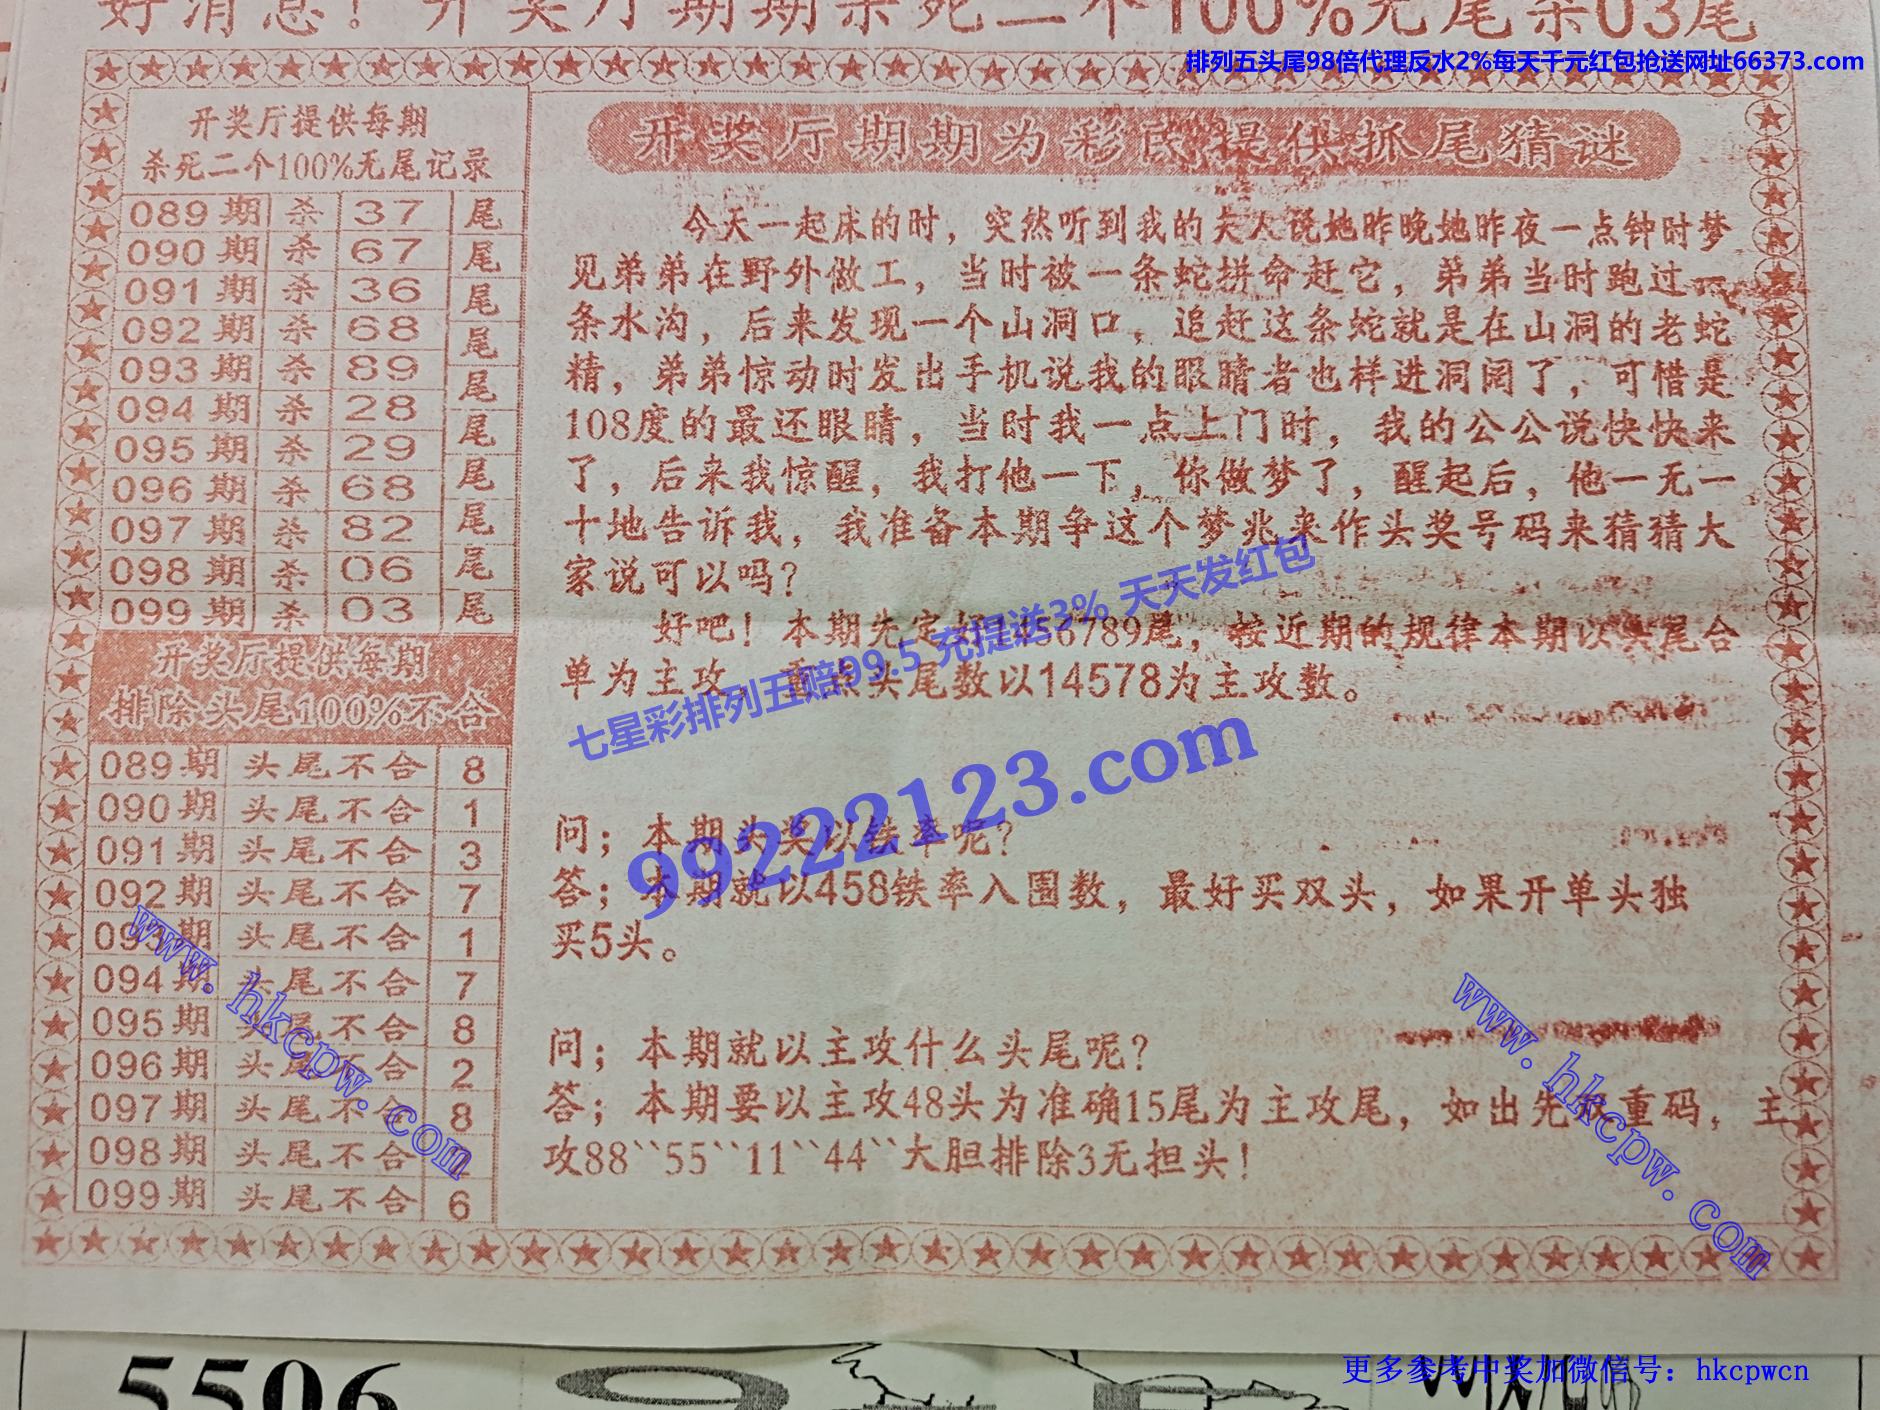 好消息！开奖厅期期杀死二个100%无尾杀03尾
排列五头尾98倍代理反水2%每天千元红包抢送网址66373.com
开奖厅提供每期
杀死二个100%无尾记录
089期 杀 37 尾
090期 杀 67 尾
091期 杀 36 尾
092期 杀 68 尾
093期 杀 89 尾
094期 杀 28 尾
095期 杀 29 尾
096期 杀 68 尾
097期 杀 82 尾
098期 杀 06 尾
099期 杀 03 尾
开奖厅提供每期
排除头尾100%不合
089期 头尾不合 8
090期 头尾不合 1
091期 头尾不合 3
092期 头尾不合 7
093期 头尾不合 1
094期 头尾不合 7
095期 头尾不合 8
096期 头尾不合 2
097期 头尾不合 8
098期 头尾不合
099期 头尾不合 6
开奖厅期期为彩民提供抓尾猜谜
今天一起床的时，突然听到我的夫人说她昨晚她昨夜一点钟时梦
见弟弟在野外做工，当时被一条蛇拼命赶它，弟弟当时跑过一
条水沟，后来发现一个山洞口，追赶这条蛇就是在山洞的老蛇
精，弟弟惊动时发出手机说我的眼睛者也样进洞阔了，可惜是
108度的最还眼睛，当时我一点上门时，我的公公说快快来
了，后来我惊醒，我打他一下，你做梦了，醒起后，他一无一
十地告诉我，我准备本期争这个梦兆来作头奖号码来猜猜大
家说可以吗？
好吧！本期先定好1456789尾，按近期的规律本期以头尾合
单为主攻，重点头尾数以14578为主攻数。
七星彩排列五赔99.5 充提送3% 天天发红包
99222123.com
问；本期头奖以铁率呢？
答；本期就以458铁率入围数，最好买双头，如果开单头独
买5头。
问；本期就以主攻什么头尾呢？
答；本期要以主攻48头为准确15尾为主攻尾，如出先 重码，主
攻88``55``11``44``大胆排除3无担头！
www.hkcpw.com
www.hkcpw.com
5506
更多参考中奖加微信号：hkcpwcn